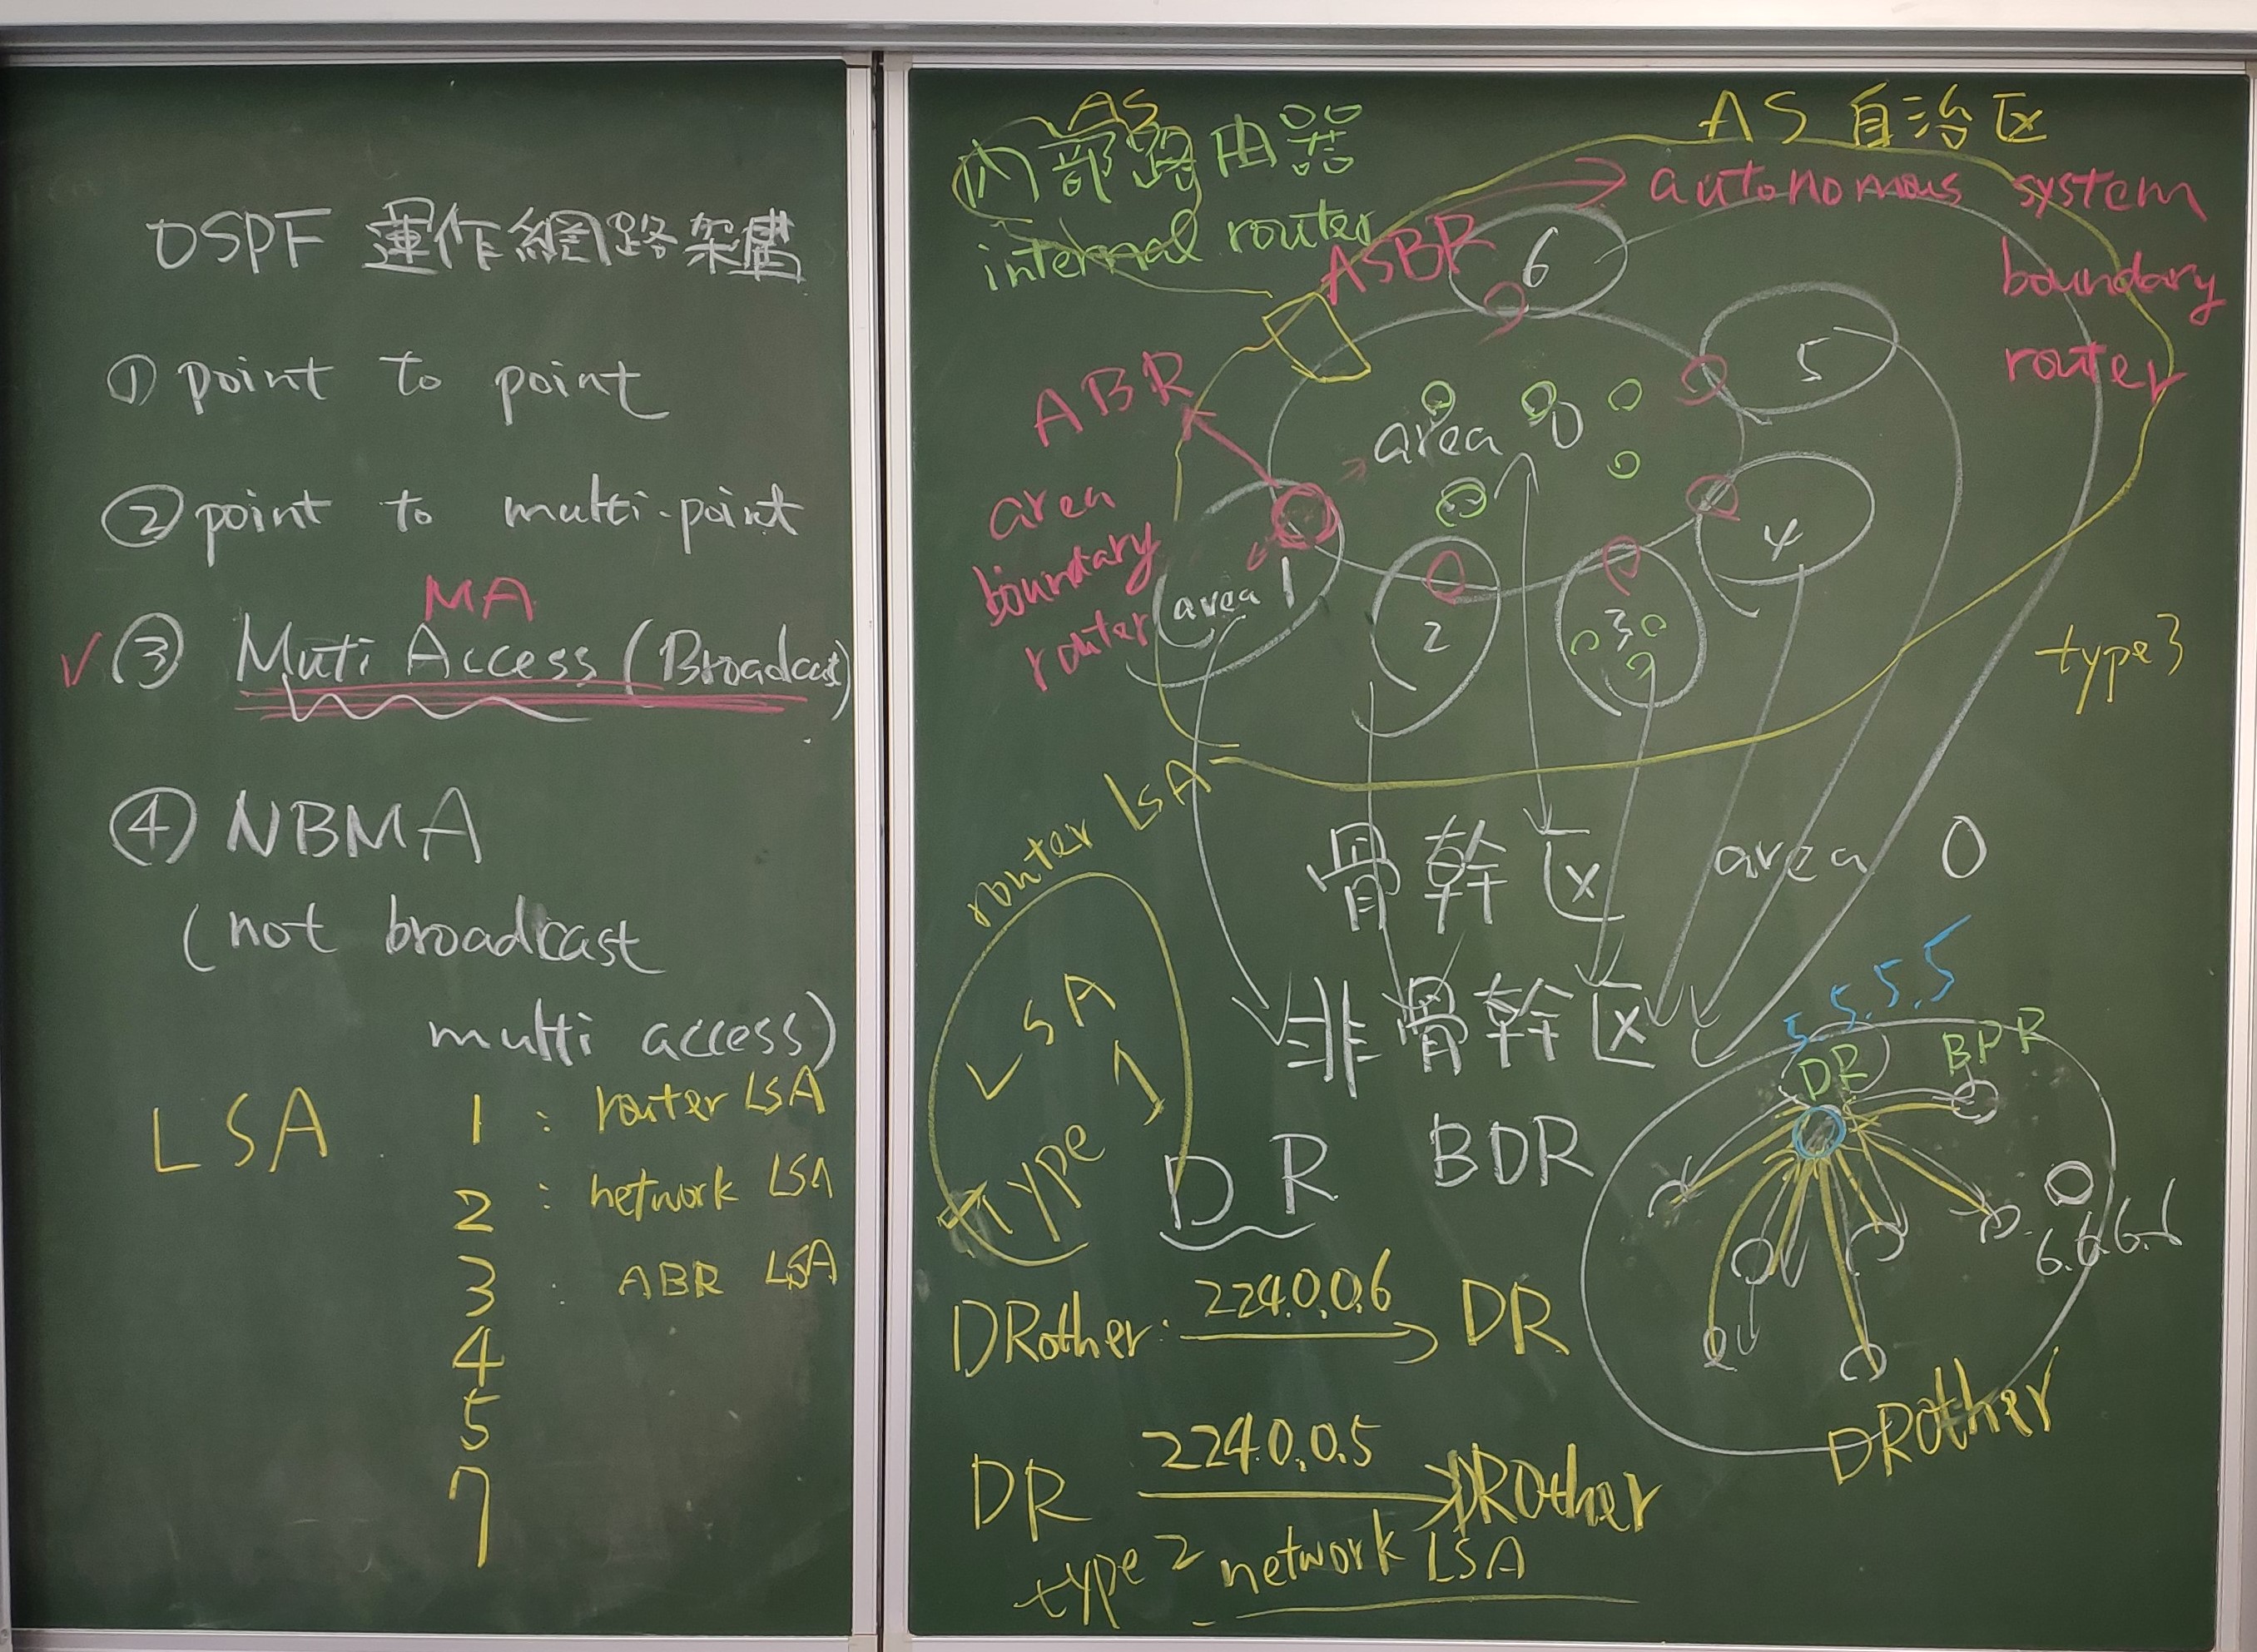 OSPF 運作網路架構
① point to point
② point to multi-point
MA
✓ ③ Muti Access (Broadcast)
④ NBMA
(not broadcast
multi access)
LSA 1 : router LSA
2 : network LSA
3 : ABR LSA
4
5
7
AS
内部路由器
internal router
AS 自治区
ASBR → autonomous system
boundary
router
ABR
area
boundary
router
area 0
area 1
2
3
4
5
6
type 3
router LSA
LSA
TYPE 1
骨幹区 area 0
非骨幹区
DR BDR
5.5.5.5
DR
DRother
DRother: 224.0.0.6 → DR
DR 224.0.0.5 → DROther
type 2 network LSA